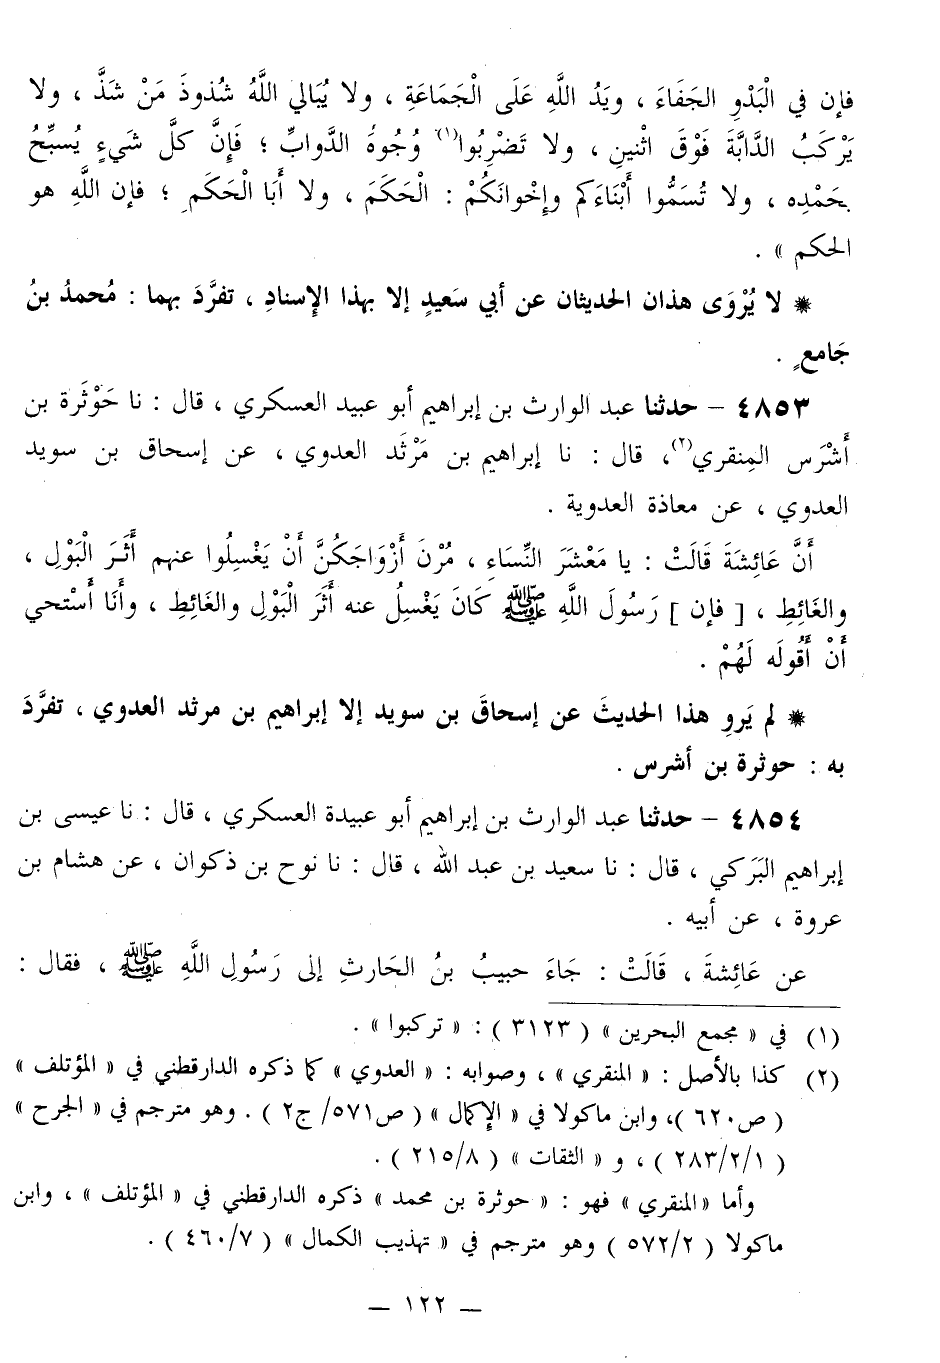 فإن في الْبَدْوِ الجَفَاءَ ، ويَدُ اللَّهِ عَلَى الْجَمَاعَةِ ، ولا يُبَالي اللَّهُ شُذوذَ مَنْ شَذَّ ، ولا
يَرْكَبُ الدَّابَّةَ فَوْقَ اثْنينِ ، ولا تَضْرِبُوا(١) وُجُوهَ الدَّوابِّ ؛ فَإِنَّ كلَّ شَيءٍ يُسبِّحُ
بحَمْدِه ، ولا تُسَمُّوا أَبْنَاءَكم وإِخْوانَكُمْ : الْحَكَمَ ، ولا أَبَا الْحَكَمِ ؛ فإن اللَّهِ هو
الحكم » .
* لا يُرْوَى هذان الحديثان عن أبي سَعيدٍ إلا بهذا الإِسنادِ ، تفرَّدَ بهما : مُحمدُ بنُ
جَامعٍ .
٤٨٥٣ – حدثنا عبد الوارث بن إبراهيم أبو عبيد العسكري ، قال : نا حَوْثَرة بن
أَشْرَس المِنقري(٢)، قال : نا إبراهيم بن مَرْثَد العدوي ، عن إسحاق بن سويد
العدوي ، عن معاذة العدوية .
أَنَّ عَائِشَةَ قَالَتْ : يا مَعْشَرَ النِّسَاءِ ، مُرْنَ أَزْوَاجَكُنَّ أَنْ يَغْسِلُوا عنهم أَثَرَ الْبَوْلِ ،
والغَائِطِ ، [ فإن ] رَسُولَ اللَّهِ ﷺ كَانَ يَغْسِلُ عنه أَثَرَ الْبَوْلِ والغَائِطِ ، وأَنَا أَسْتحي
أَنْ أَقُولَه لَهُمْ .
* لم يَروِ هذا الحديثَ عن إسحاقَ بن سويد إلا إبراهيم بن مرثد العدوي ، تفرَّدَ
به : حوثرة بن أشرس .
٤٨٥٤ – حدثنا عبد الوارث بن إبراهيم أبو عبيدة العسكري ، قال : نا عيسى بن
إبراهيم البَرَكي ، قال : نا سعيد بن عبد الله ، قال : نا نوح بن ذكوان ، عن هشام بن
عروة ، عن أبيه .
عن عَائِشةَ ، قَالَتْ : جَاءَ حبيبُ بنُ الحَارثِ إلى رَسُولِ اللَّهِ ﷺ ، فقال :
(١) في « مجمع البحرين » ( ٣١٢٣ ) : « تركبوا » .
(٢) كذا بالأصل : « المنقري » ، وصوابه : « العدوي » كما ذكره الدارقطني في « المؤتلف »
( ص٦٢٠ )، وابن ماكولا في « الإكمال » ( ص٥٧١/ ج٢ ) . وهو مترجم في « الجرح »
( ٢٨٣/٢/١ ) ، و « الثقات » ( ٢١٥/٨ ) .
وأما «المنقري » فهو : « حوثرة بن محمد » ذكره الدارقطني في « المؤتلف » ، وابن
ماكولا ( ٥٧٢/٢ ) وهو مترجم في « تهذيب الكمال » ( ٤٦٠/٧ ) .
– ١٢٢ –